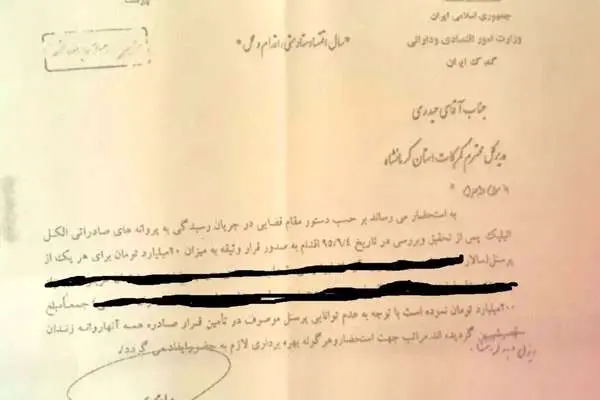 جمهوری اسلامی ایران
وزارت امور اقتصادی و دارائی
گمرک ایران
«سال اقتصاد مقاومتی، اقدام و عمل»
جناب آقای حیدری
مدیرکل محترم گمرکات استان کرمانشاه
با سلام و احترام
به استحضار می رساند بر حسب دستور مقام قضایی در جریان رسیدگی به پروانه های صادراتی الکل
اتیلیک پس از تحقیق وبررسی در تاریخ ۹۵/۶/۴ اقدام به صدور قرار وثیقه به میزان ۲۰میلیارد تومان برای هر یک از
پرسنل(سالار
جمعاًمبلغ
۲۰۰میلیارد تومان نموده است با توجه به عدم توانایی پرسنل موصوف در تأمین قرار صادره همه آنهاروانه زندان
گردیده اند.مراتب جهت استحضاروهرگونه بهره برداری لازم به حضورتان اعلام می گردد/.